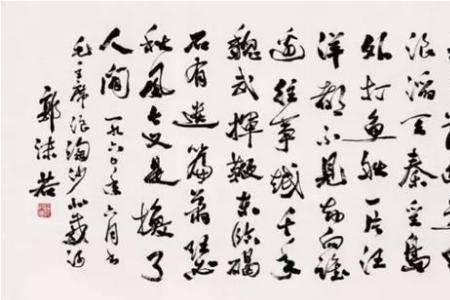 浪滔天秦皇島
外打魚船一片汪
洋都不見知向誰
邊往事越千年
魏武揮鞭東臨碣
石有遺篇蕭瑟
秋風今又是換了
人间 一九六〇年六月书
毛主席浪淘沙北戴河
郭沫若